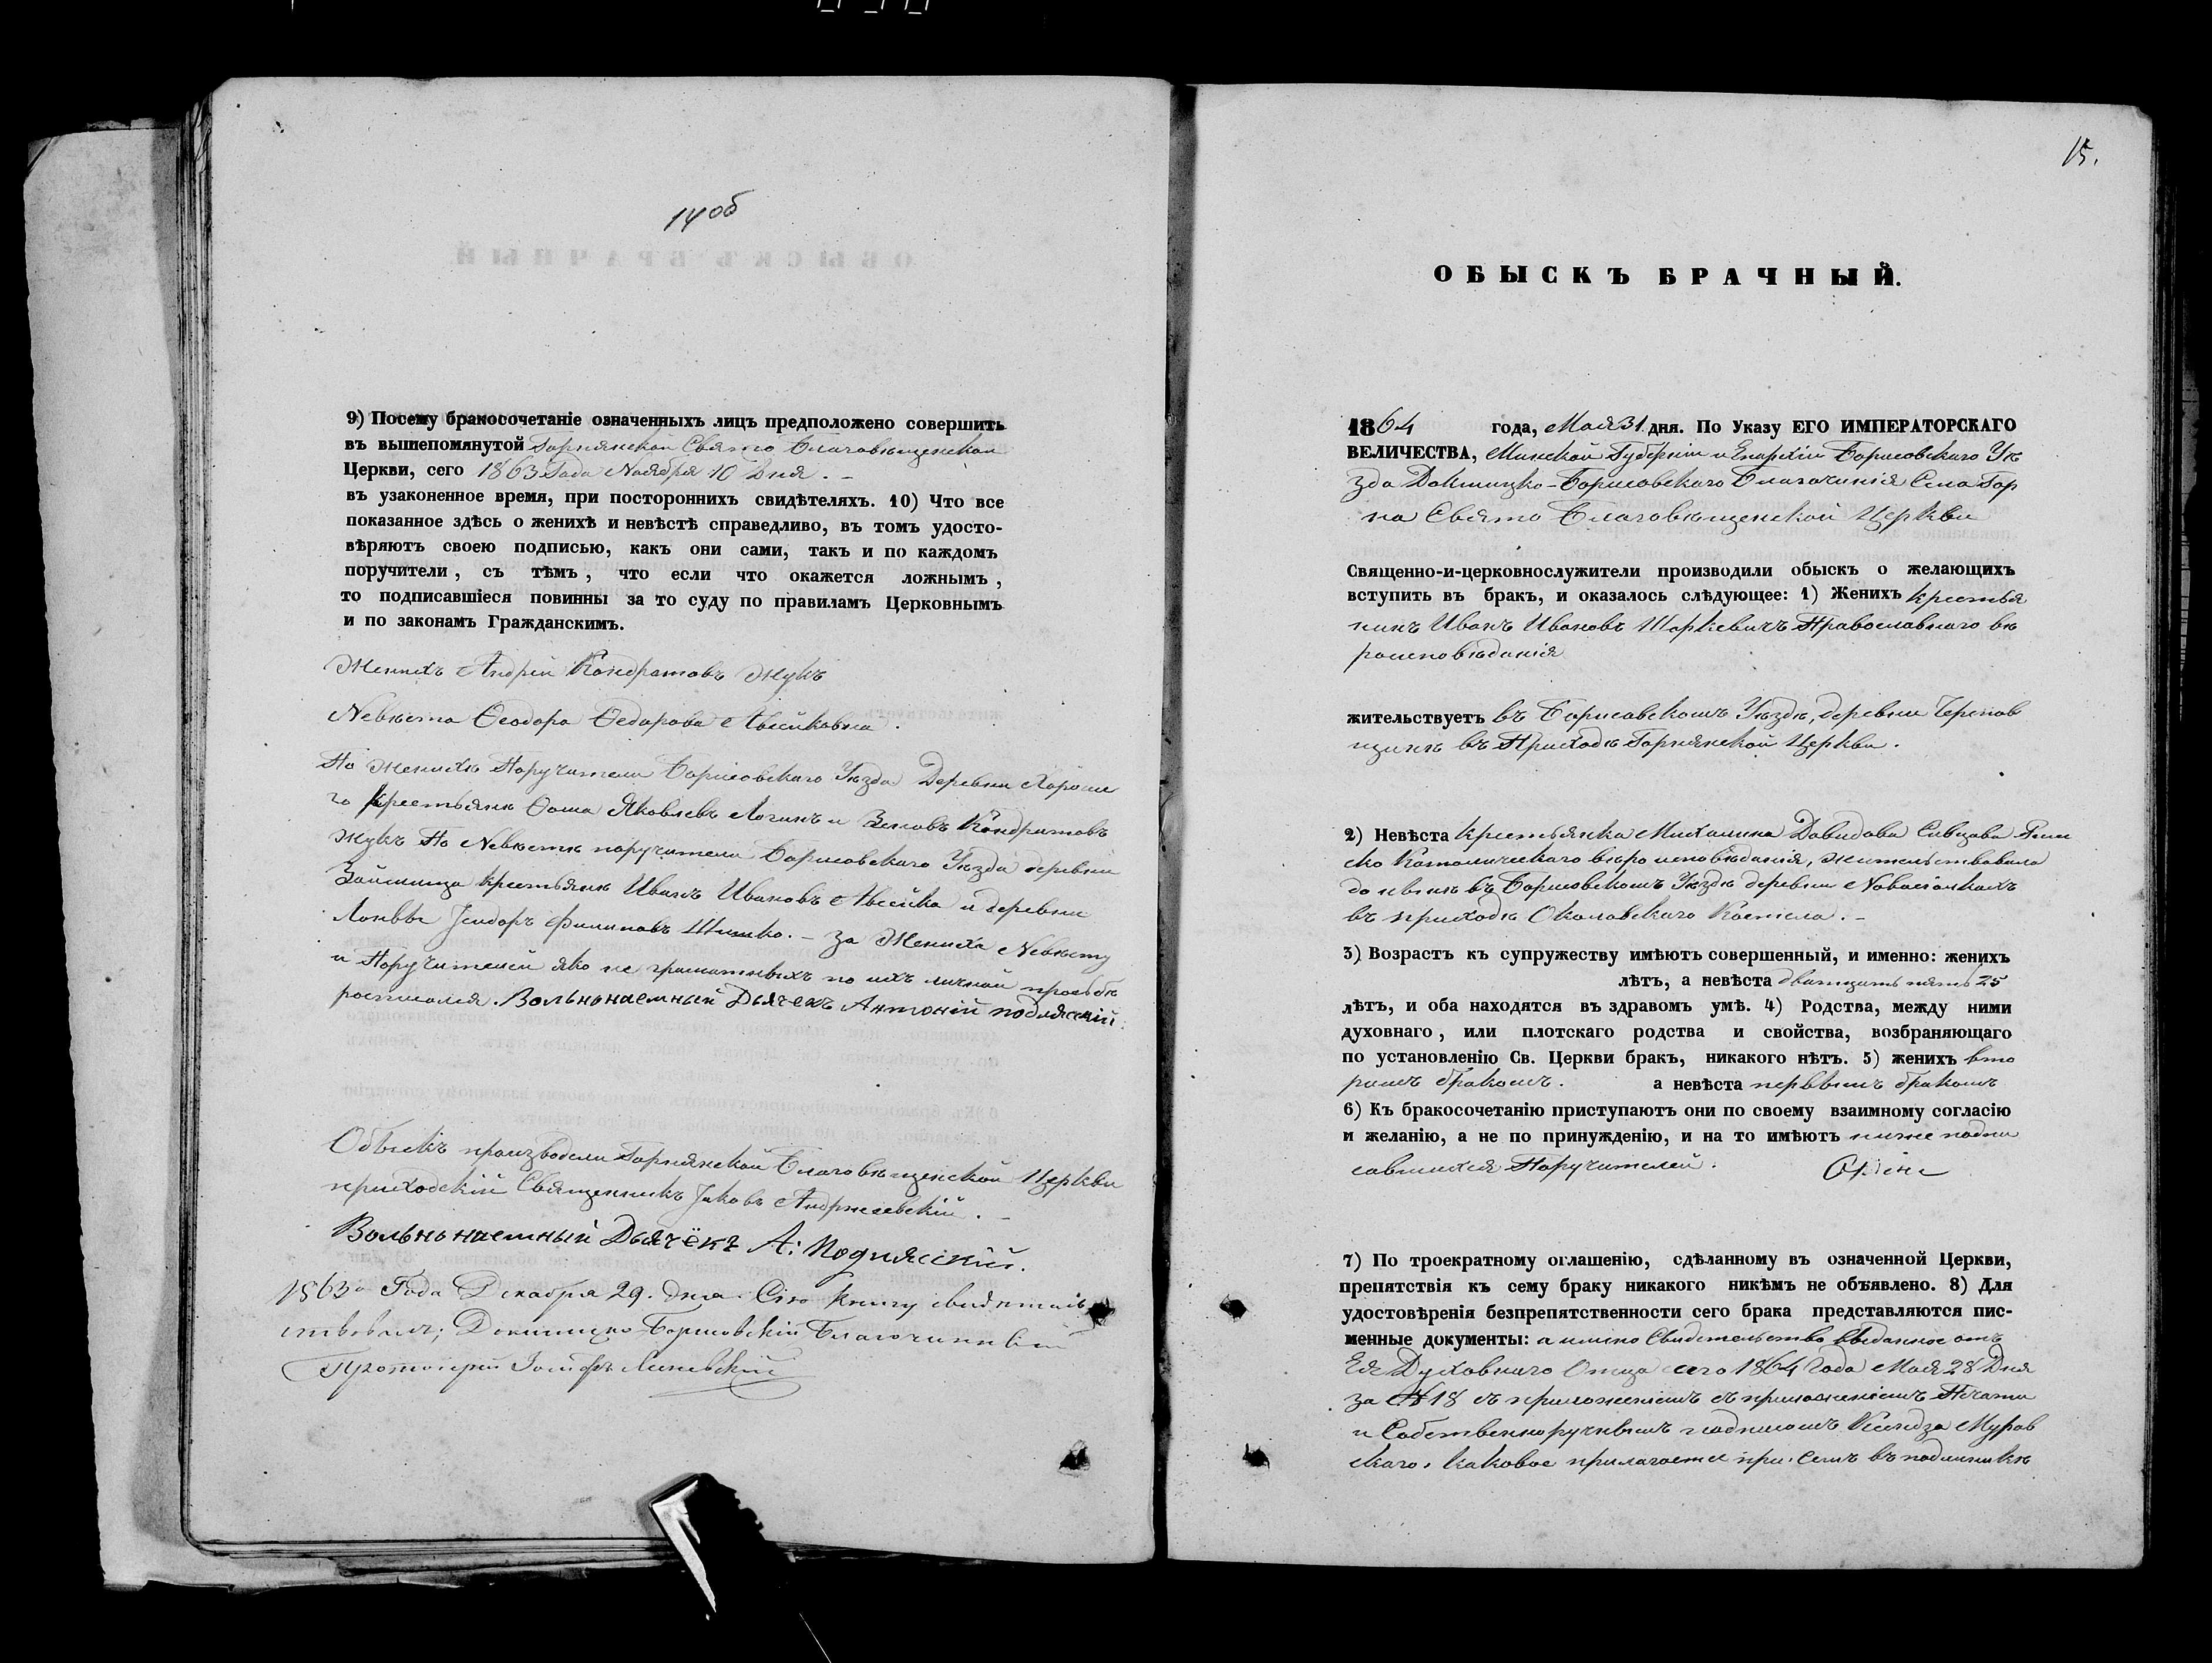 14 об
9) Посему бракосочетаніе означенныхъ лицъ предположено совершить
въ вышепомянутой Горнянской Свято Благовѣщенской
Церкви, сего 1863 Года Ноября 10 Дня. -
въ узаконенное время, при постороннихъ свидѣтеляхъ. 10) Что все
показанное здѣсь о женихѣ и невѣстѣ справедливо, въ томъ удосто-
вѣряютъ своею подписью, какъ они сами, такъ и по каждомъ
поручители, съ тѣмъ, что если что окажется ложнымъ,
то подписавшіеся повинны за то суду по правиламъ Церковнымъ
и по законамъ Гражданскимъ.
Женихъ Андрей Кондратовъ Жукъ
Невѣста Ѳеодора Ѳедорова Авсейковна.
По Женихѣ Поручители Борисовскаго Уѣзда Деревни
го крестьяне Ѳома Яковлевъ Логинъ и Кондратовъ
Жукъ По Невѣстѣ поручители Борисовскаго Уѣзда деревни
крестьяне Иванъ Ивановъ Авсейка и деревни
Ісидоръ Филиповъ Шишко. - За Жениха Невѣсту
и Поручителей яко не грамотныхъ по ихъ личной прозьбѣ
росписался. Вольнонаемный Дьячекъ Антоній подлясскій.
Обыскъ производили Горнянской Благовѣщенской Церкви
приходскій Священникъ Іаковъ Андржеевскій. -
Вольнонаемный Дьячёкъ А: Подлясскій.
1863го Года Декабря 29. дня. Сію книгу свидѣтель
ствовалъ; Докшицко-Борисовскій Благочинный
Протоіерей Іосифъ
15.
ОБЫСКЪ БРАЧНЫЙ.
1864 года, Мая 31 дня. По Указу ЕГО ИМПЕРАТОРСКАГО
ВЕЛИЧЕСТВА, Минской Губерніи и Епархіи Борисовскаго Уѣ
зда Докшицко-Борисовскаго Благочинія Села Гор
на Свято Благовѣщенской Церкви
Священно-и-церковнослужители производили обыскъ о желающихъ
вступить въ бракъ, и оказалось слѣдующее: 1) Женихъ крестья
нинъ Иванъ Ивановъ Шоркевичъ Православнаго вѣ
роисповѣданія
жительствуетъ въ Борисовскомъ Уѣздѣ, деревни Черепов
щинѣ въ Приходѣ Горнянской Церкви.
2) Невѣста крестьянка Михалина Давидова Сивцова Рим
ско Католическаго вѣроисповѣданія, жительствовала
до нынѣ въ Борисовскомъ Уѣздѣ деревни Новосіолкахъ
въ приходѣ Околовскаго Костела. -
3) Возрастъ къ супружеству имѣютъ совершенный, и именно: женихъ
лѣтъ, а невѣста дватцать пять 25
лѣтъ, и оба находятся въ здравомъ умѣ. 4) Родства, между ними
духовнаго, или плотскаго родства и свойства, возбраняющаго
по установленію Св. Церкви бракъ, никакого нѣтъ. 5) женихъ вто
рымъ бракомъ. а невѣста первымъ бракомъ
6) Къ бракосочетанію приступаютъ они по своему взаимному согласію
и желанію, а не по принужденію, и на то имѣютъ ниже подпи
савшихся Поручителей.
7) По троекратному оглашенію, сдѣланному въ означенной Церкви,
препятствія къ сему браку никакого никѣмъ не объявлено. 8) Для
удостовѣренія безпрепятственности сего брака представляются пис-
менные документы: а имено Свидетельство выданное отъ
Ея Духовнаго Отца сего 1864 Года Мая 28 Дня
за № 18 съ приложеніемъ съ приложеніемъ Печати
и Собственноручнымъ подписомъ Ксендза Муров
скаго. каковое прилагается при. семъ въ подлиникѣ